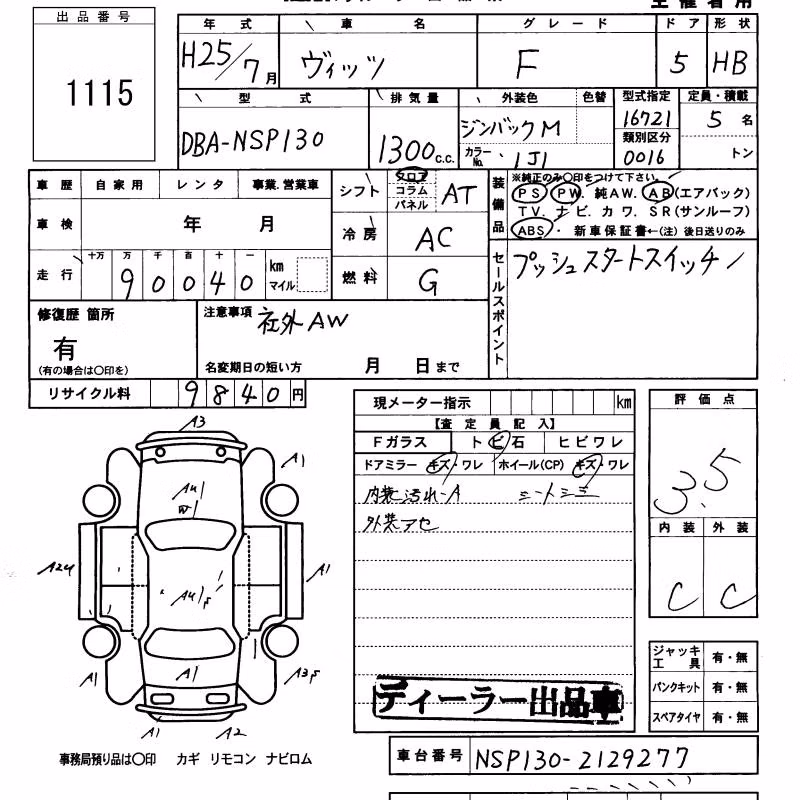 出品番号
1115
年式 車名 グレード ドア 形状
H25/7月 ヴィッツ F 5 HB
型式 排気量 外装色 色替 型式指定 定員・積載
DBA-NSP130 1300c.c. ジンバックM 16721 5名
カラーNo. 1J1 類別区分 0016 トン
車歴 自家用 レンタ 事業.営業車
シフト フロア コラム パネル AT
装備品
※純正のみ〇印をつけて下さい。
PS PW. 純AW. AB(エアバック)
TV. ナビ. カワ. SR(サンルーフ)
ABS・ 新車保証書←(注) 後日送りのみ
車検 年 月
冷房 AC
走行 十万 万 千 百 十 一
90040 km マイル
燃料 G
セールスポイント
プッシュスタートスイッチ
修復歴 箇所
有
(有の場合は〇印を)
注意事項 社外AW
名変期日の短い方 月 日まで
リサイクル料 9840円
現メーター指示 km
【査定員記入】
Fガラス トビ石 ヒビワレ
ドアミラー キズ・ワレ ホイール(CP) キズ・ワレ
内装汚れ-A シートシミ
外装アセ
評価点
3.5
内装 外装
C C
A3
A1
AU1
W1
A2U
A1
AU1P
A1
A1
A3P
A1
A2
ジャッキ工具 有・無
パンクキット 有・無
スペアタイヤ 有・無
ディーラー出品車
事務局預り品は〇印 カギ リモコン ナビロム
車台番号 NSP130-2129277